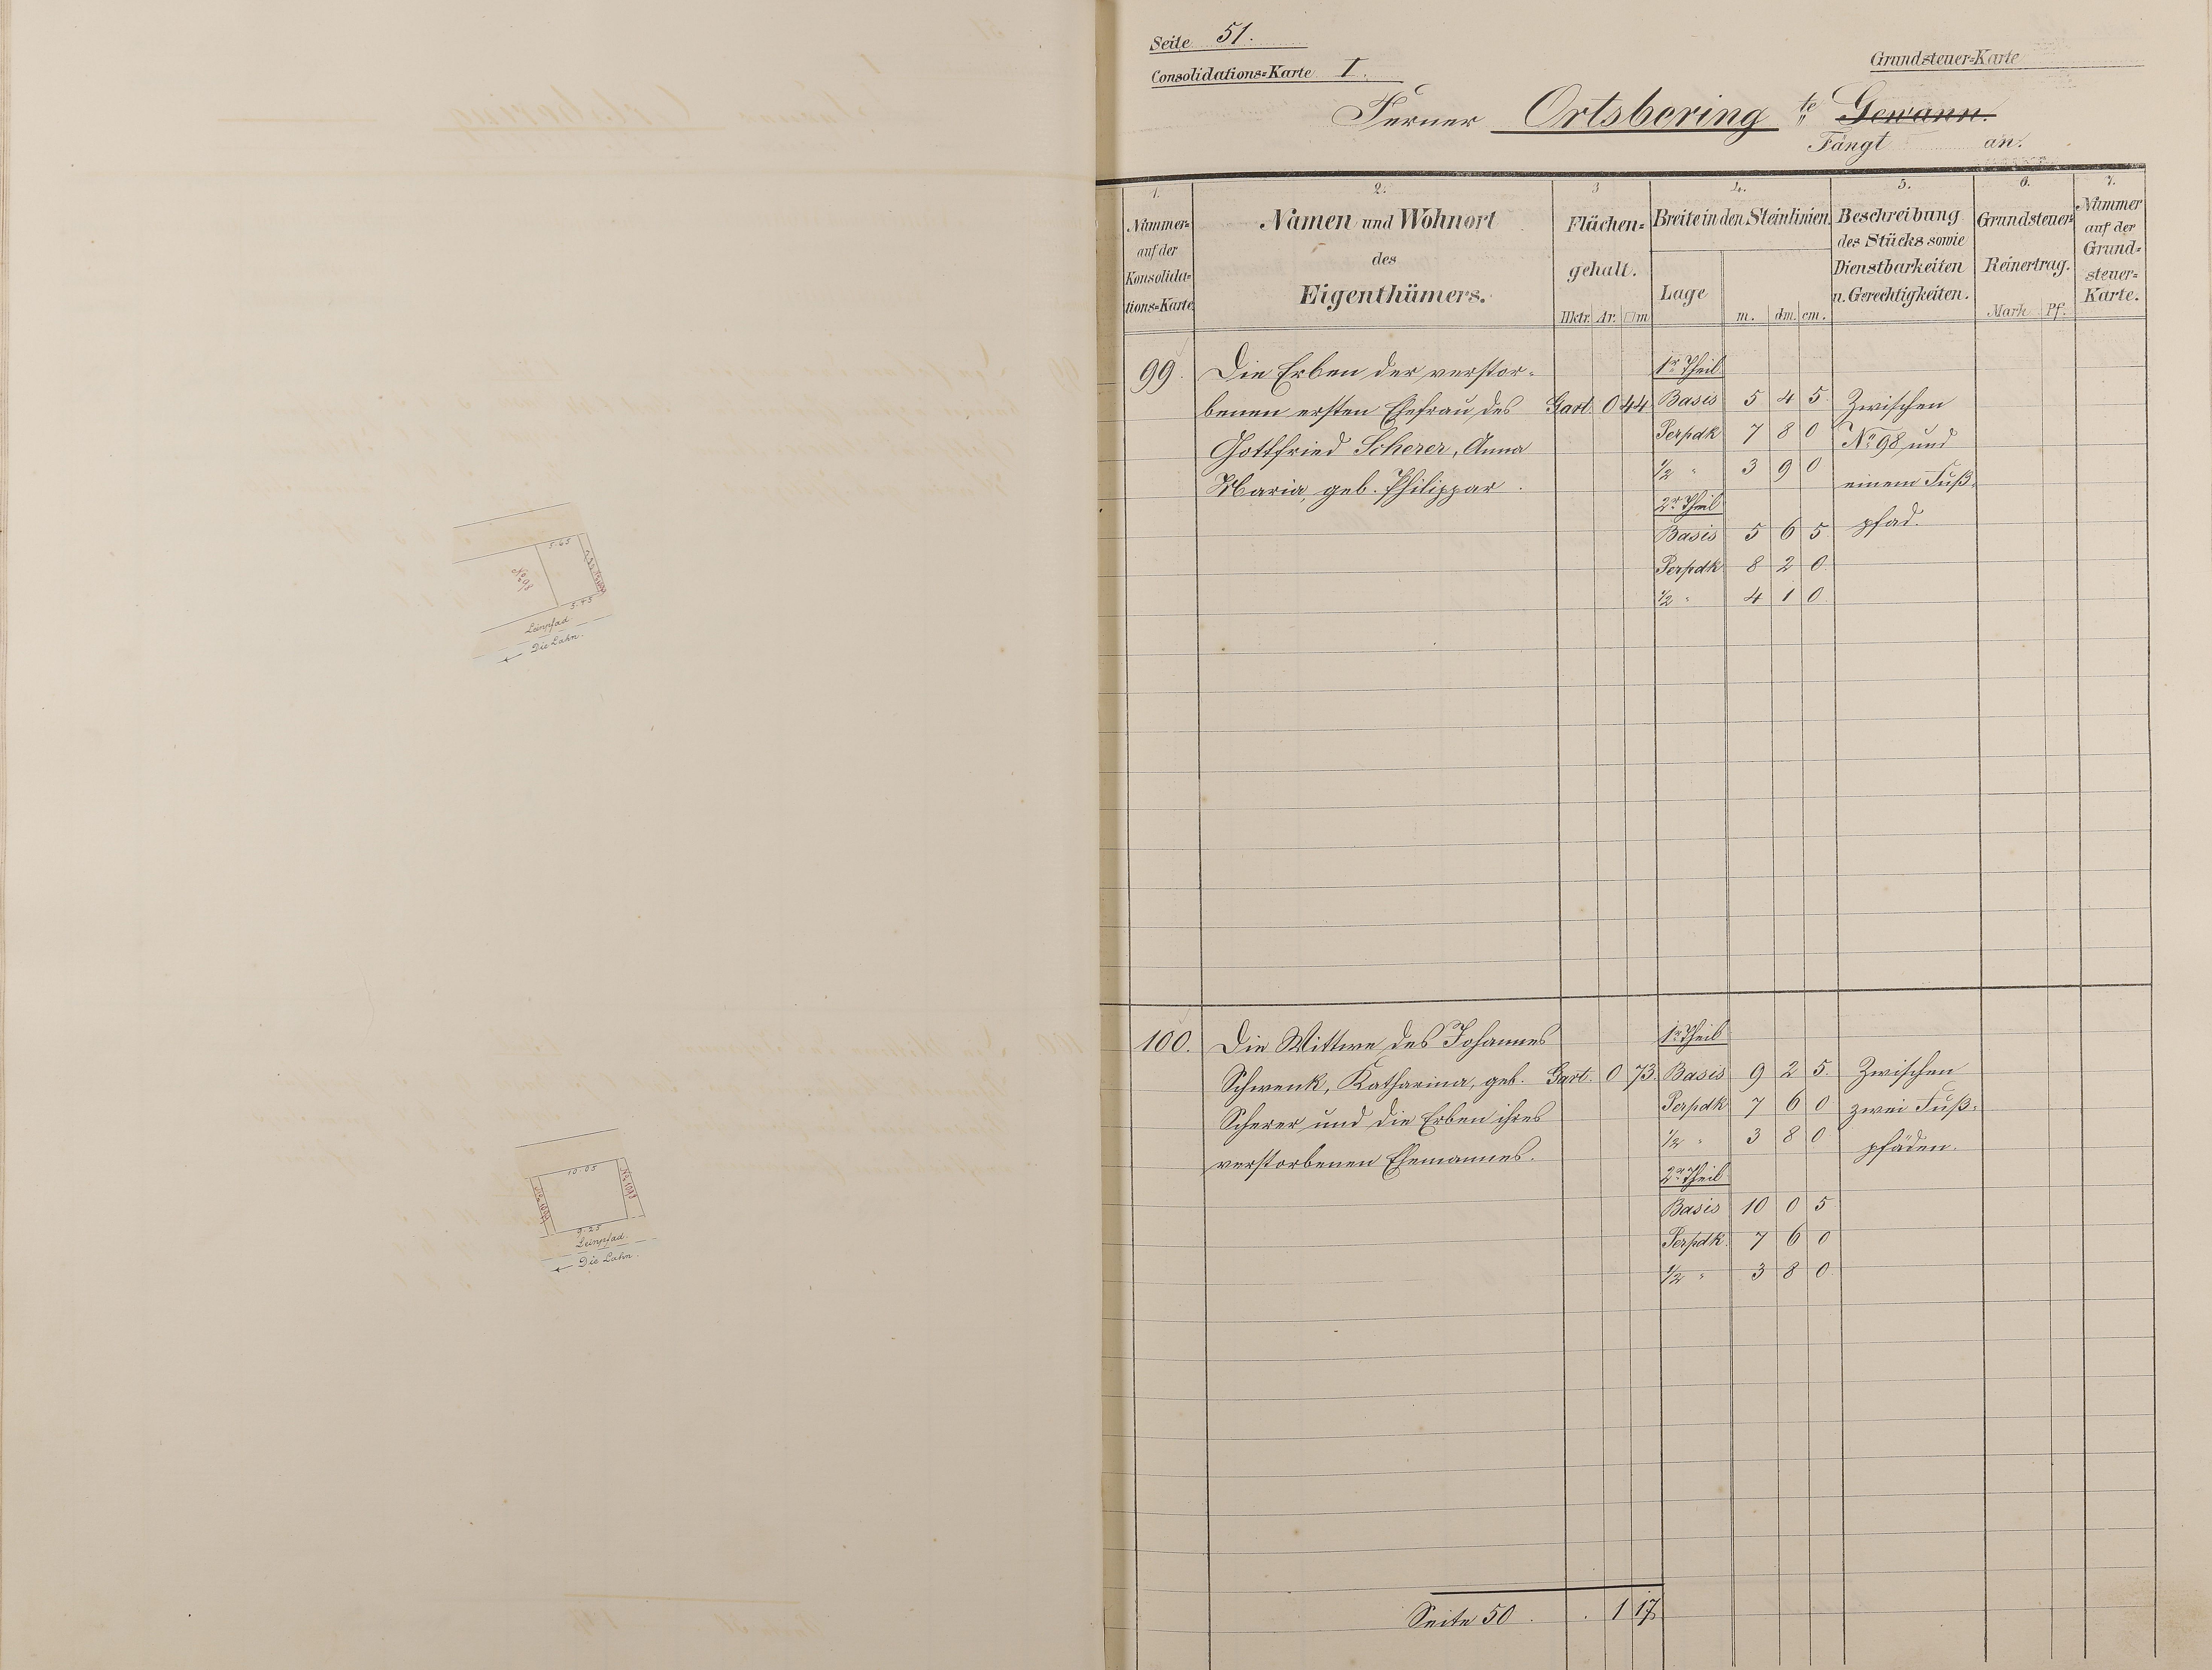 5.65
No. 98
5.45
Leinpfad
Die Lahn.
10.05
9.25
Leinpfad.
Die Lahn.
Seite 51.
Consolidations=Karte I.
Grundsteuer=Karte
Ferner Ortsbering te Gewann.
Fängt an.
1. 2. 3 4. 5. 6. 7.
Nummer=
auf der
Konsolida=
tions=Karte
Namen und Wohnort
des
Eigenthümers.
Flächen=
gehalt.
Hktr. Ar. □m
Breite in den Steinlinien.
Lage
m. dm. cm.
Beschreibung
des Stücks sowie
Dienstbarkeiten
u. Gerechtigkeiten.
Grundsteuer=
Reinertrag.
Mark Pf.
Nummer
auf der
Grund=
steuer=
Karte.
99. Die Erben der verstor- 1r Theil
benen ersten Ehefrau des Gart. 0 44 Basis 5 4 5 Zwischen
Gottfried Scherer, Anna Perpdk 7 8 0 No 98 und
Maria, geb. Philippar. 1/2 " 3 9 0 einem Fuß-
2r Theil
Basis 5 6 5 pfad.
Perpdk 8 2 0
1/2 " 4 1 0
100. Die Wittwe des Johannes 1r Theil
Schwenk, Katharina, geb. Gart. 0 73. Basis 9 2 5. Zwischen
Scherer und die Erben ihres Perpdk 7 6 0 zwei Fuß-
verstorbenen Ehemannes. 1/2 " 3 8 0 pfäden.
2r Theil
Basis 10 0 5
Perpdk. 7 6 0
1/2 " 3 8 0
Seite 50 . . 1 17